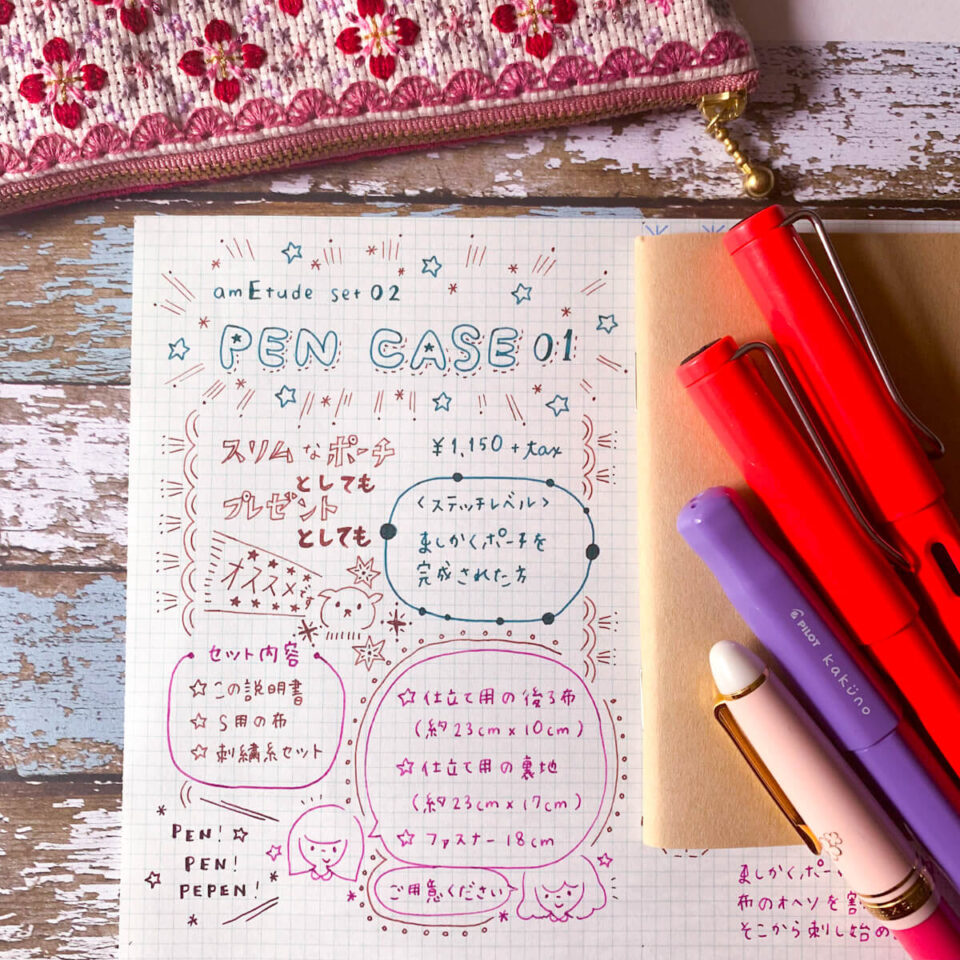 amEtude set 02
PEN CASE 01
スリムなポーチ
としても
プレゼント
としても
¥1,150 + tax
〈ステッチレベル〉
ましかくポーチを
完成された方
オススメです
セット内容
☆この説明書
☆S用の布
☆刺繍糸セット
☆仕立て用の後ろ布
(約23cm×10cm)
☆仕立て用の裏地
(約23cm×17cm)
☆ファスナー18cm
ご用意ください
PEN!
PEN!
PEPEN!
PILOT kaküno
ましかくポー
布のオヘソを割
そこから刺し始め